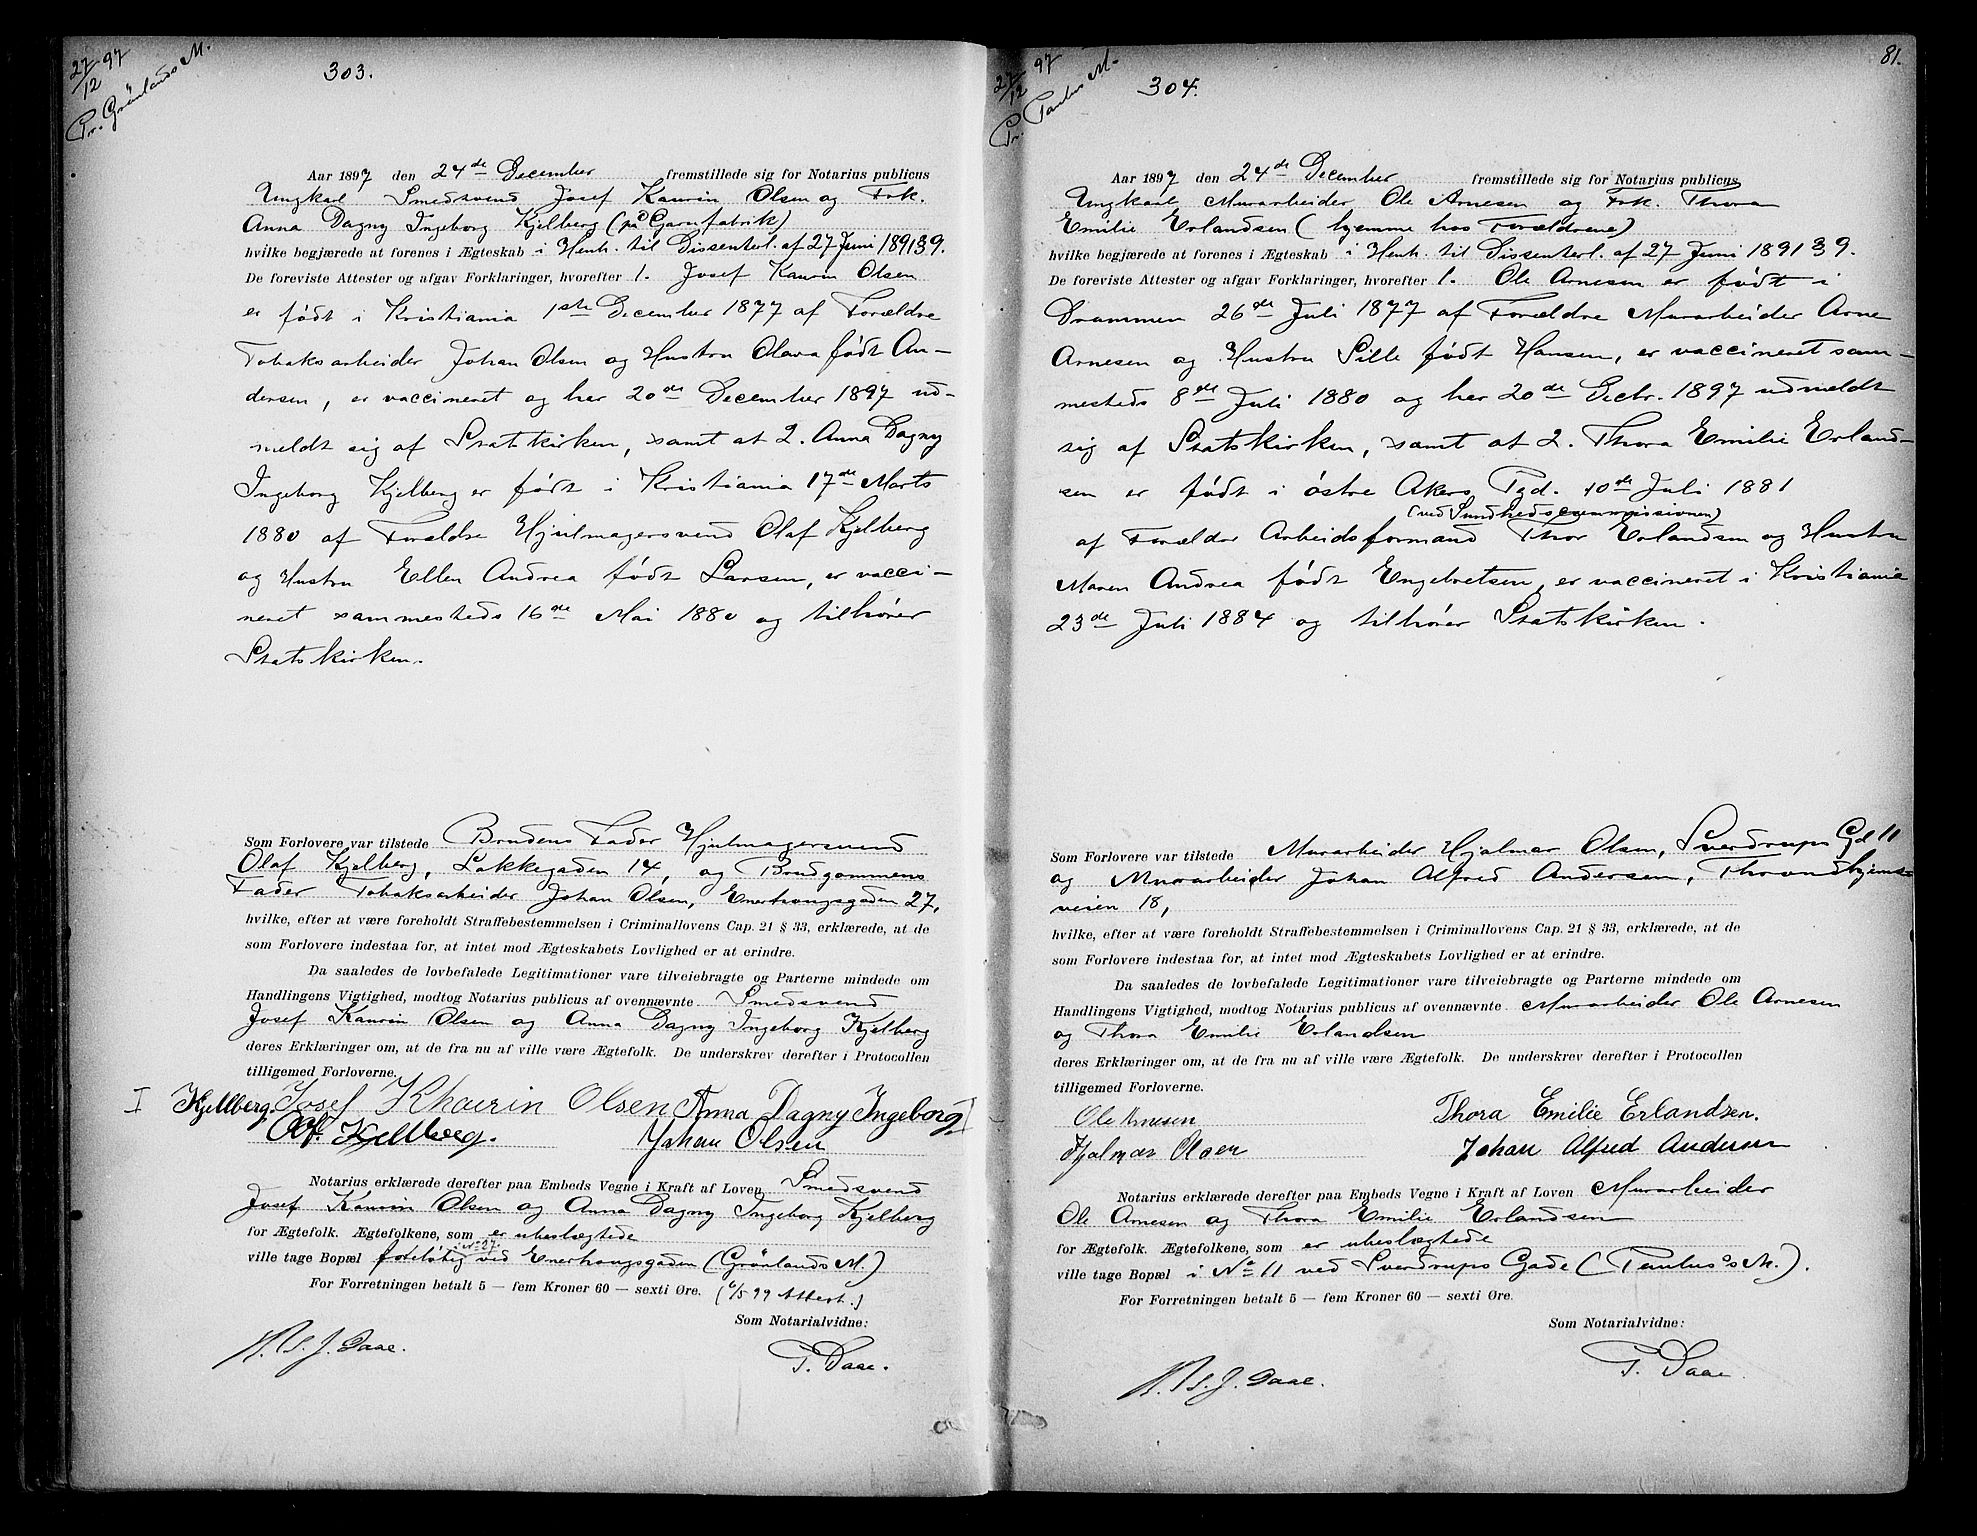 27/12 97
Pr. Grönlands M.
303.
Aar 1897 den 24de December fremstillede sig for Notarius publicus
Ungkarl Smedsvend Josef Kaurin Olsen og Frk.
Anna Dagny Ingeborg Kjelberg (på Garnfabrik)
hvilke begjærede at forenes i Ægteskab i Henh. til Dissenterl. af 27 Juni 1891 § 9.
De foreviste Attester og afgav Forklaringer, hvorefter 1. Josef Kaurin Olsen
er født i Kristiania 1ste December 1877 af Forældre
Tobaksarbeider Johan Olsen og Hustru Olava født An-
dersen, er vaccineret og har 20de December 1897 ud-
meldt sig af Statskirken, samt at 2. Anna Dagny
Ingeborg Kjelberg er født i Kristiania 17de Marts
1880 af Forældre Hjulmagersvend Olaf Kjelberg
og Hustru Ellen Andrea født Larsen, er vacci-
neret sammesteds 16de Mai 1880 og tilhører
Statskirken.
Som Forlovere var tilstede Brudens Fader Hjulmagersvend
Olaf Kjelberg, Lakkegaden 14, og Brudgommens
Fader Tobaksarbeider Johan Olsen, Enerhaugsgaden 27,
hvilke, efter at være foreholdt Straffebestemmelsen i Criminallovens Cap. 21 § 33, erklærede, at de
som Forlovere indestaa for, at intet mod Ægteskabets Lovlighed er at erindre.
Da saaledes de lovbefalede Legitimationer vare tilveiebragte og Parterne mindede om
Handlingens Vigtighed, modtog Notarius publicus af ovennævnte Smedsvend
Josef Kaurin Olsen og Anna Dagny Ingeborg Kjelberg
deres Erklæringer om, at de fra nu af ville være Ægtefolk. De underskrev derefter i Protocollen
tilligemed Forloverne.
I Kjellberg. Josef Khaurin Olsen Anna Dagny Ingeborg I
Olf. Kjellberg. Johan Olsen
Notarius erklærede derefter paa Embeds Vegne i Kraft af Loven Smedsvend
Josef Kaurin Olsen og Anna Dagny Ingeborg Kjelberg
for Ægtefolk. Ægtefolkene, som er ubeslægtede
i No 27
ville tage Bopæl foreløbig ved Enerhaugsgaden (Grönlands M.)
For Forretningen betalt 5 — fem Kroner 60 — sexti Øre. (6/5 99 Attest.)
Som Notarialvidne:
J. Daae.
T. Daae.
27/12 97
Pr. Paulus M.
81.
304.
Aar 1897 den 24de December fremstillede sig for Notarius publicus
Ungkarl Murarbeider Ole Arnesen og Frk. Thora
Emilie Erlandsen (hjemme hos Forældrene)
hvilke begjærede at forenes i Ægteskab i Henh. til Dissenterl. af 27 Juni 1891 § 9.
De foreviste Attester og afgav Forklaringer, hvorefter 1. Ole Arnesen er født i
Drammen 26de Juli 1877 af Forældre Murarbeider Arne
Arnesen og Hustru Sille født Hansen, er vaccineret sam-
mesteds 8de Juli 1880 og har 20de Decbr. 1897 udmeldt
sig af Statskirken, samt at 2. Thora Emilie Erland-
sen er født i østre Akers Pgd. 10de Juli 1881
(ved Sundhedscommissionen)
af Forældre Arbeidsformand Thor Erlandsen og Hustru
Maren Andrea født Engebretsen, er vaccineret i Kristiania
23de Juli 1884 og tilhører Statskirken.
Som Forlovere var tilstede Murarbeider Hjalmar Olsen, Sverdrups Gd 11
og Murarbeider Johan Alfred Andersen, Throndhjems-
veien 18,
hvilke, efter at være foreholdt Straffebestemmelsen i Criminallovens Cap. 21 § 33, erklærede, at de
som Forlovere indestaa for, at intet mod Ægteskabets Lovlighed er at erindre.
Da saaledes de lovbefalede Legitimationer vare tilveiebragte og Parterne mindede om
Handlingens Vigtighed, modtog Notarius publicus af ovennævnte Murarbeider Ole Arnesen
og Thora Emilie Erlandsen
deres Erklæringer om, at de fra nu af ville være Ægtefolk. De underskrev derefter i Protocollen
tilligemed Forloverne.
Ole Arnesen Thora Emilie Erlandsen.
Hjalmar Olsen Johan Alfred Andersen
Notarius erklærede derefter paa Embeds Vegne i Kraft af Loven Murarbeider
Ole Arnesen og Thora Emilie Erlandsen
for Ægtefolk. Ægtefolkene, som er ubeslægtede
ville tage Bopæl i No 11 ved Sverdrups Gade (Paulus's M.).
For Forretningen betalt 5 — fem Kroner 60 — sexti Øre.
Som Notarialvidne:
J. Daae.
T. Daae